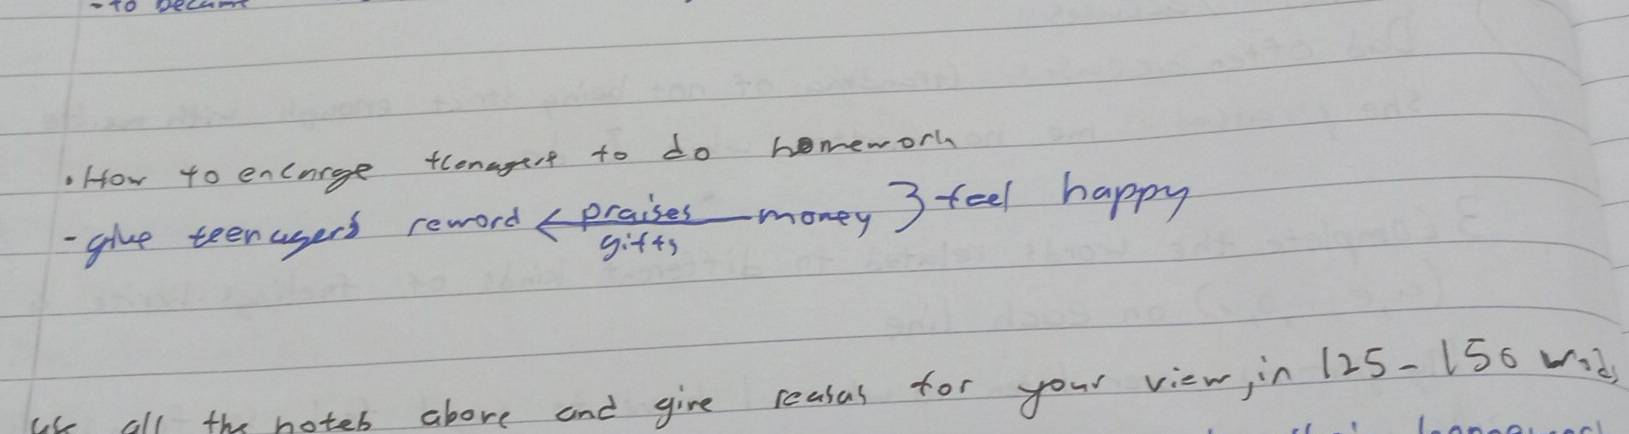 - to became
• How to encurge teenagers to do homework
- give teenagers reword < praises — money } feel happy
gifts
use all the notes above and give reasas for your view, in 125 - 150 wods